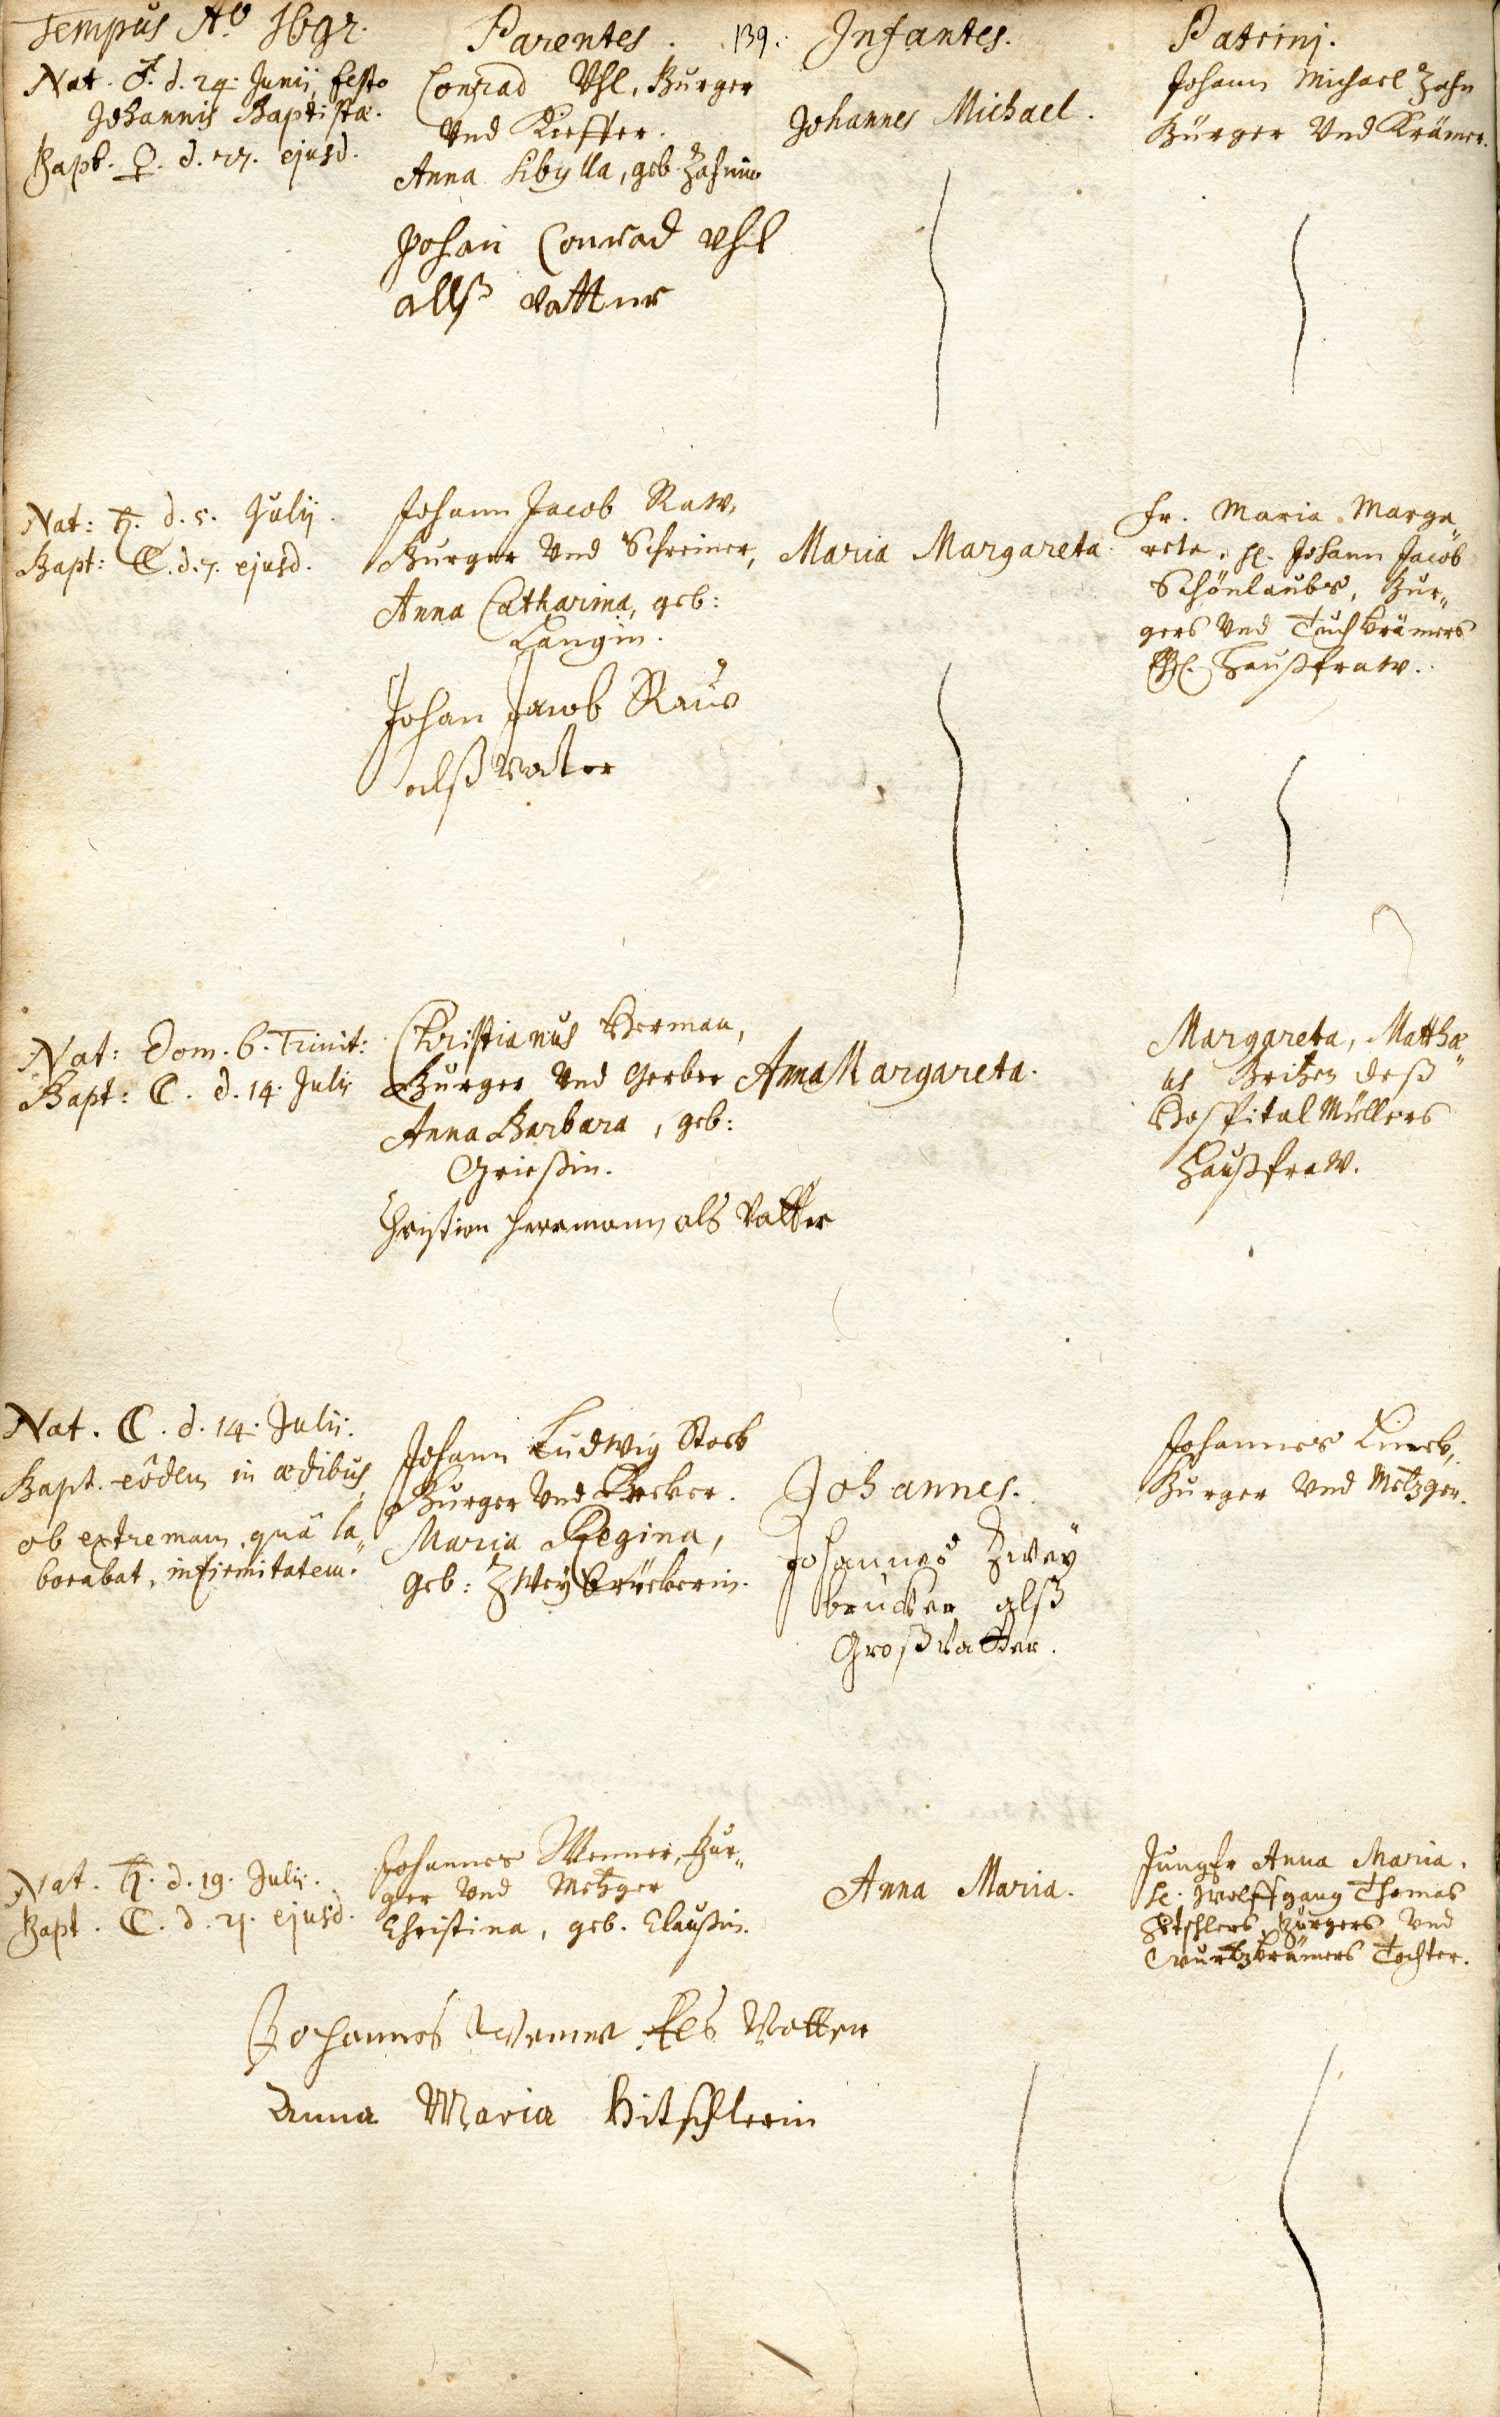 Tempus Aö 1692.
Parentes.
139.
Infantes.
Patrini.
Nat. ♂. d. 24. Junij, festo
Johannis Baptistæ.
Bapt. ♀. d. 27. ejusd.
Conrad Uhl, Burger
Und Kieffer.
Anna Sibylla, geb. Zahnin
Johan Conrad Uhl
allß Vatter
Johannes Michael.
Johann Michael Zahn
Bürger Und Krämer.
Nat: ♄. d. 5. Julij.
Bapt: ☾. d. 7. ejusd.
Johann Jacob Raw,
Burger Und Schreiner,
Anna Catharina, geb:
Langin.
Johan Jacob Rauw
alß Vatter
Maria Margareta.
Fr. Maria Marga„
reta, H. Johann Jacob
Schönlaubs, Bur„
gers Und Tuchkrämers
Haußfraw.
Nat: Dom. 6. Trinit:
Bapt: ☾. d. 14. Julij
Christianus Herman,
Burger Und Gerber
Anna Barbara, geb:
Grießin.
Christian Herrmann als Vatter
Anna Margareta.
Margareta, Matthæ„
us Britzen deß
Hospital Müllers
Haußfraw.
Nat. ☾. d. 14. Julij.
Bapt. eôdem in ædibus,
ob extremam, quâ la„
borabat, infirmitatem.
Johann Ludwig Stock
Burger Und Becker.
Maria Regina,
geb: Zweybrückerin.
Johannes.
Johannes Zwey
brucker alß
Großvatter.
Johannes
Burger Und Metzger.
Nat. ♄. d. 19. Julij.
Bapt. ☾. d. 21. ejusd.
Johannes Wenner, Bur„
ger Und Metzger
Christina, geb. Claußin.
Johannes Wenner als Vatter
Anna Maria Hitschlerin
Anna Maria.
Jungfr Anna Maria,
H. Wolffgang Thomas
Hitschlers, Burgers Und
Wurtzkrämers Tochter.